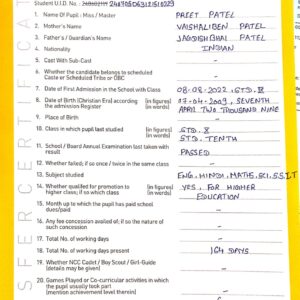 Student U.I.D. No. 248705063121510029
1. Name Of Pupil : Miss / Master PREET PATEL
2. Mother's Name VAISHALIBEN PATEL
3. Father's / Guardian's Name JAGDISHBHAI PATEL
4. Nationality INDIAN
5. Cast With Sub-Cast -
6. Whether the candidate belongs to scheduled
Caste or Scheduled Tribe or OBC -
7. Date of First Admission in the School with Class 08-08-2022, STD. 8
8. Date of Birth (Christian Era) according (in figures) 07-04-2009, SEVENTH
the admission Register (in words) APRIL TWO THOUSAND NINE
9. Place of Birth -
10. Class in which pupil last studied (in figures) STD. X
(in words) STD. TENTH
11. School / Board Annual Examination last taken with
result PASSED
12. Whether failed; if so once / twice in the same class -
13. Subject studied ENG, HINDI, MATHS, SCI, S.S, I.T
14. Whether qualified for promotion to (in figures) YES, FOR HIGHER
higher class; if no which class (in words) EDUCATION
15. Month up to which the pupil has paid school
dues/paid -
16. Any fee concession availed of; if so the nature of
such concession -
17. Total No. of working days -
18. Total No. of working days present 164 DAYS
19. Whether NCC Cadet / Boy Scout / Girl-Guide
(details may be given) -
20. Games Played or Co-curricular activities in which
the pupil usually took part
(mention achievement level therein) -
SFER CERTIFICAT